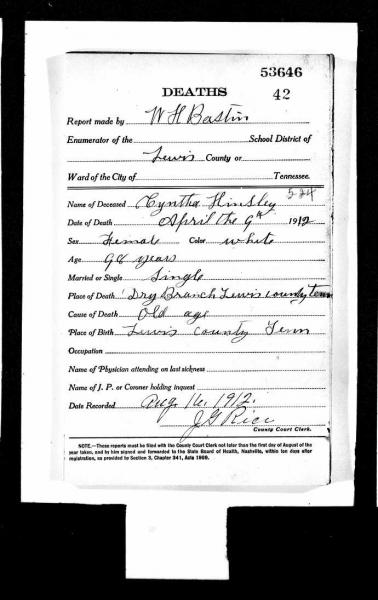 53646
DEATHS 42
Report made by W H Bastin
Enumerator of the School District of
Lewis County or
Ward of the City of Tennessee.
524
Name of Deceased Cyntha Hinsley
Date of Death April the 9th 1912
Sex Female Color white
Age 98 years
Married or Single Single
Place of Death Dry Branch Lewis county tenn
Cause of Death Old age
Place of Birth Lewis county Tenn
Occupation
Name of Physician attending on last sickness
Name of J. P. or Coroner holding inquest
Date Recorded Aug. 16. 1912.
J G Rice
County Court Clerk.
NOTE.—These reports must be filed with the County Court Clerk not later than the first day of August of the
year taken, and by him signed and forwarded to the State Board of Health, Nashville, within ten days after
registration, as provided by Section 3, Chapter 341, Acts 1909.